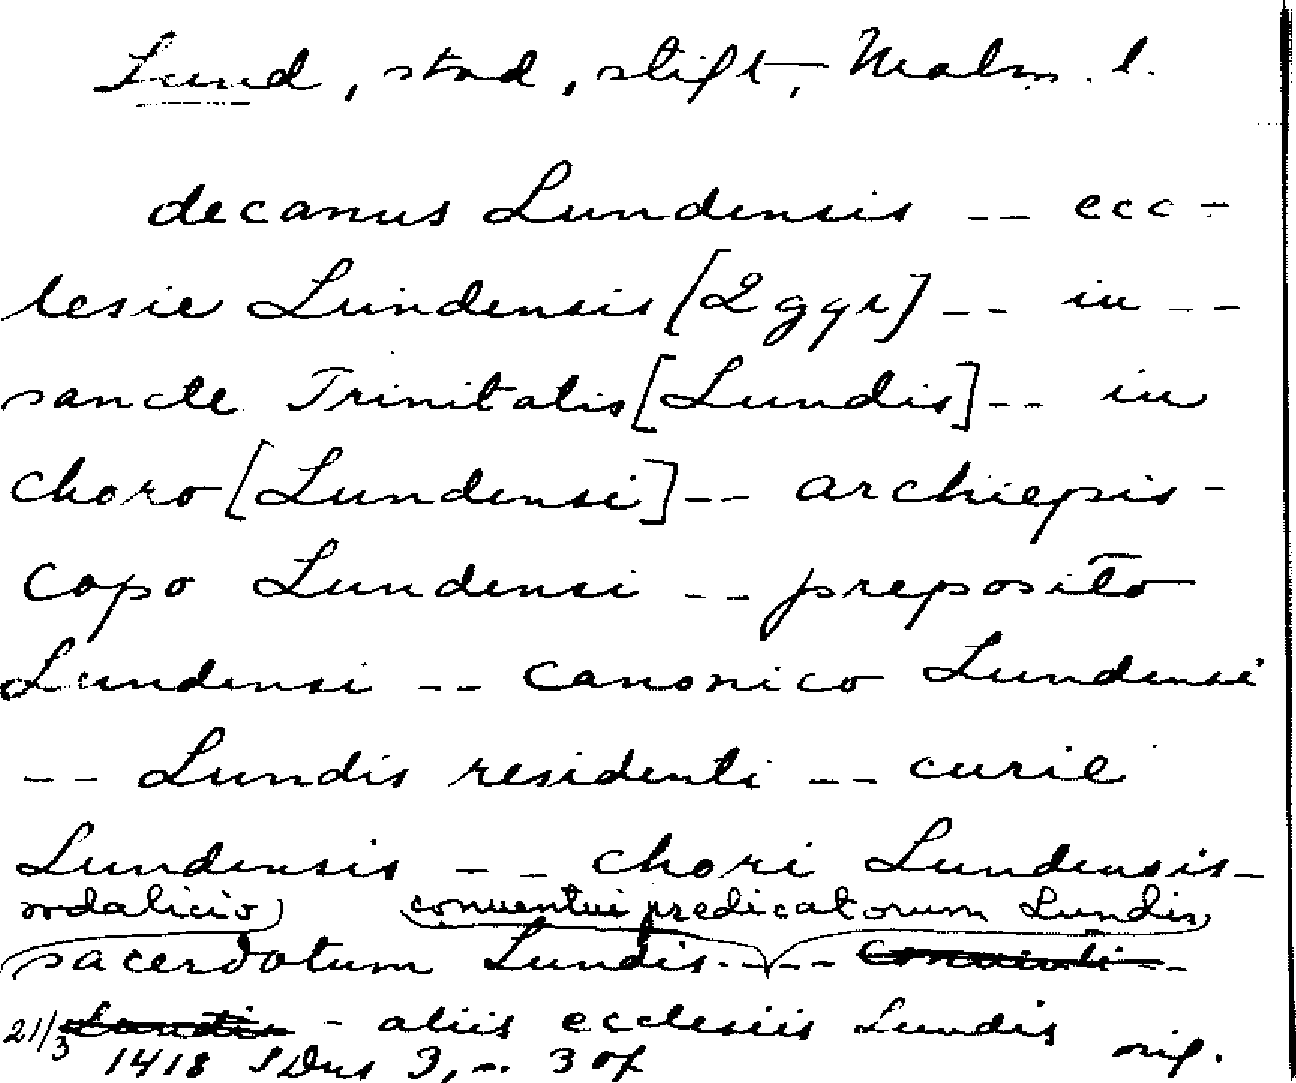 Lund, stad, stift, Malm. l.
decanus Lundensis -- ecc-
lesie Lundensis [2 ggr] -- in --
sancte Trinitatis [Lundis] -- in
choro [Lundensi] -- archiepis-
copo Lundensi -- preposito
Lundensi -- canonico Lundensi
-- Lundis residenti -- curie
Lundensis -- chori Lundensis -
sodalicio conuentui predicatorum Lundis
sacerdotum Lundis ----
- aliis ecclesiis Lundis
21/3 1418 SDns 3, 3 of orig.